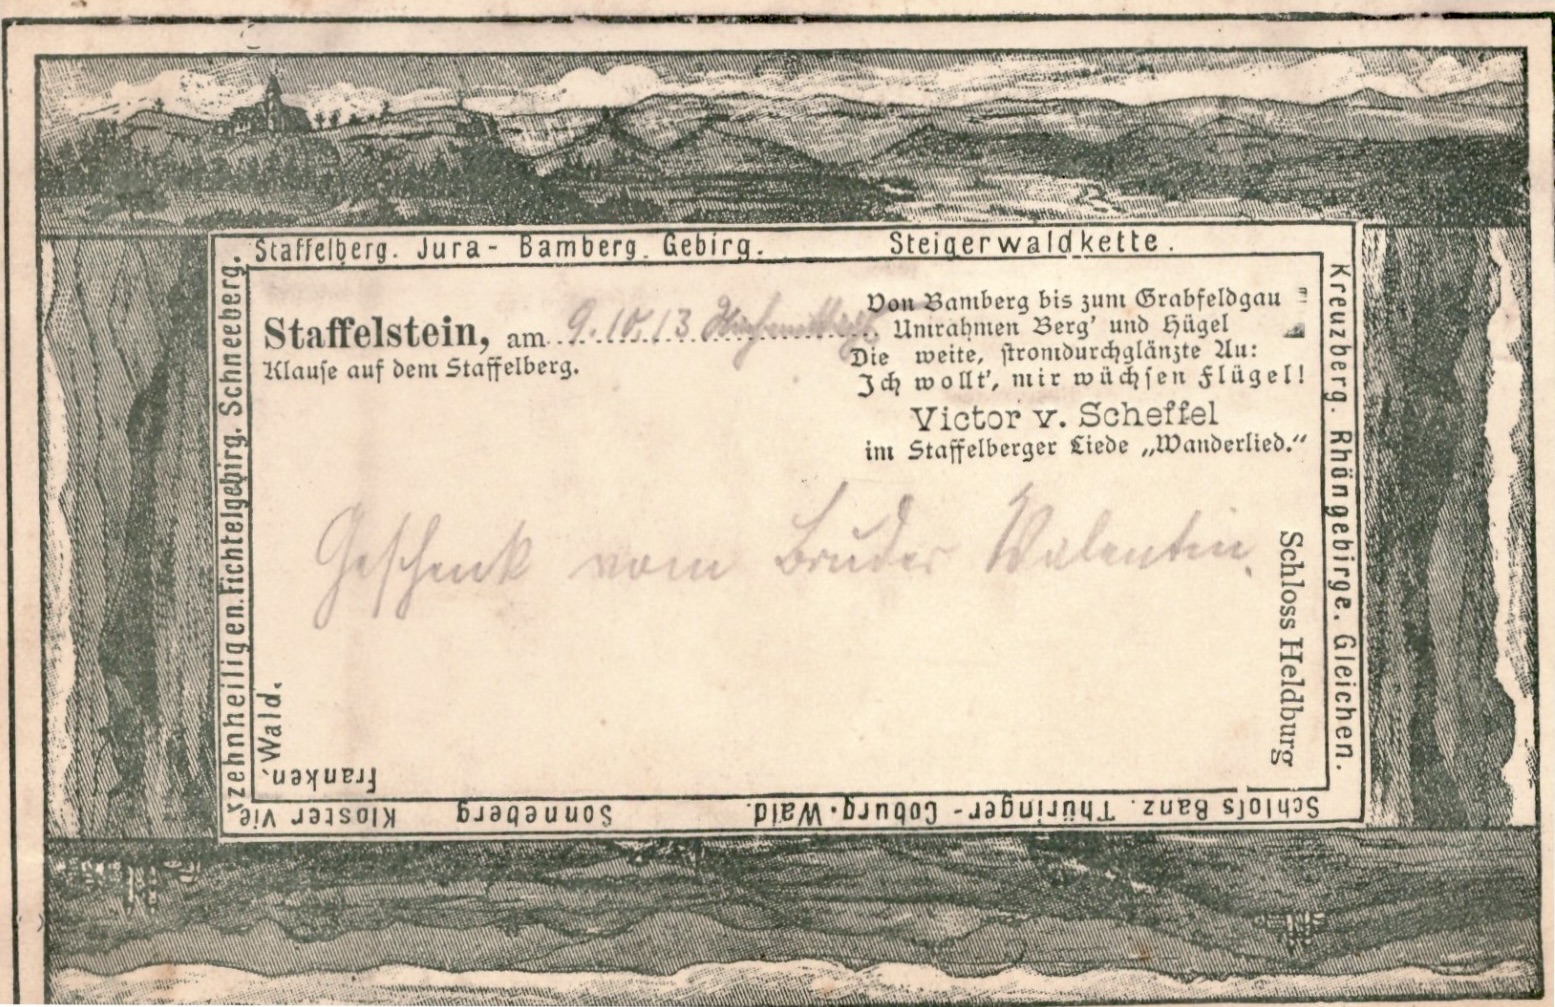 Staffelberg. Jura- Bamberg. Gebirg. Steigerwaldkette.
Staffelstein, am 9.10.13
Klause auf dem Staffelberg.
Von Bamberg bis zum Grabfeldgau
Umrahmen Berg' und Hügel
Die weite, stromdurchglänzte Au:
Ich wollt', mir wüchsen Flügel!
Victor v. Scheffel
im Staffelberger Liede „Wanderlied.“
Geschenk vom Bruder Valentin.
Kreuzberg. Rhöngebirge. Gleichen.
Schloss Heldburg
Schloſs Banz. Thüringer-Coburg.Wald. Sonneberg Kloster Vier
zehnheiligen. Fichtelgebirg. Schneeberg.
Franken.
Wald.